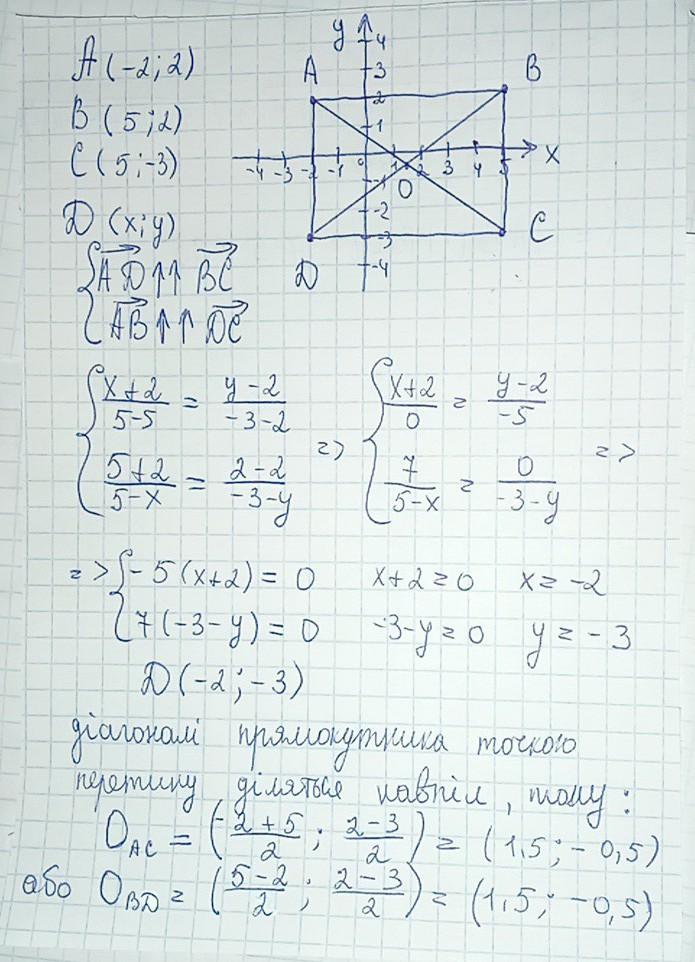 A (-2; 2)
B (5; 2)
C (5; -3)
D (x; y)
{ AD ↑↑ BC
AB ↑↑ DC
y
4
3
2
1
-4 -3 -2 -1 0 1 2 3 4 5 x
-1
-2
-3
-4
A
B
O
C
D
{ (x+2)/(5-5) = (y-2)/(-3-2)
(5+2)/(5-x) = (2-2)/(-3-y)
=> { (x+2)/0 = (y-2)/(-5)
7/(5-x) = 0/(-3-y)
=>
=> { -5(x+2) = 0 x+2=0 x=-2
7(-3-y) = 0 -3-y=0 y=-3
D(-2; -3)
діагоналі прямокутника точкою
перетину діляться навпіл, тому:
O_AC = ((-2+5)/2; (2-3)/2) = (1,5; -0,5)
або O_BD = ((5-2)/2; (2-3)/2) = (1,5; -0,5)